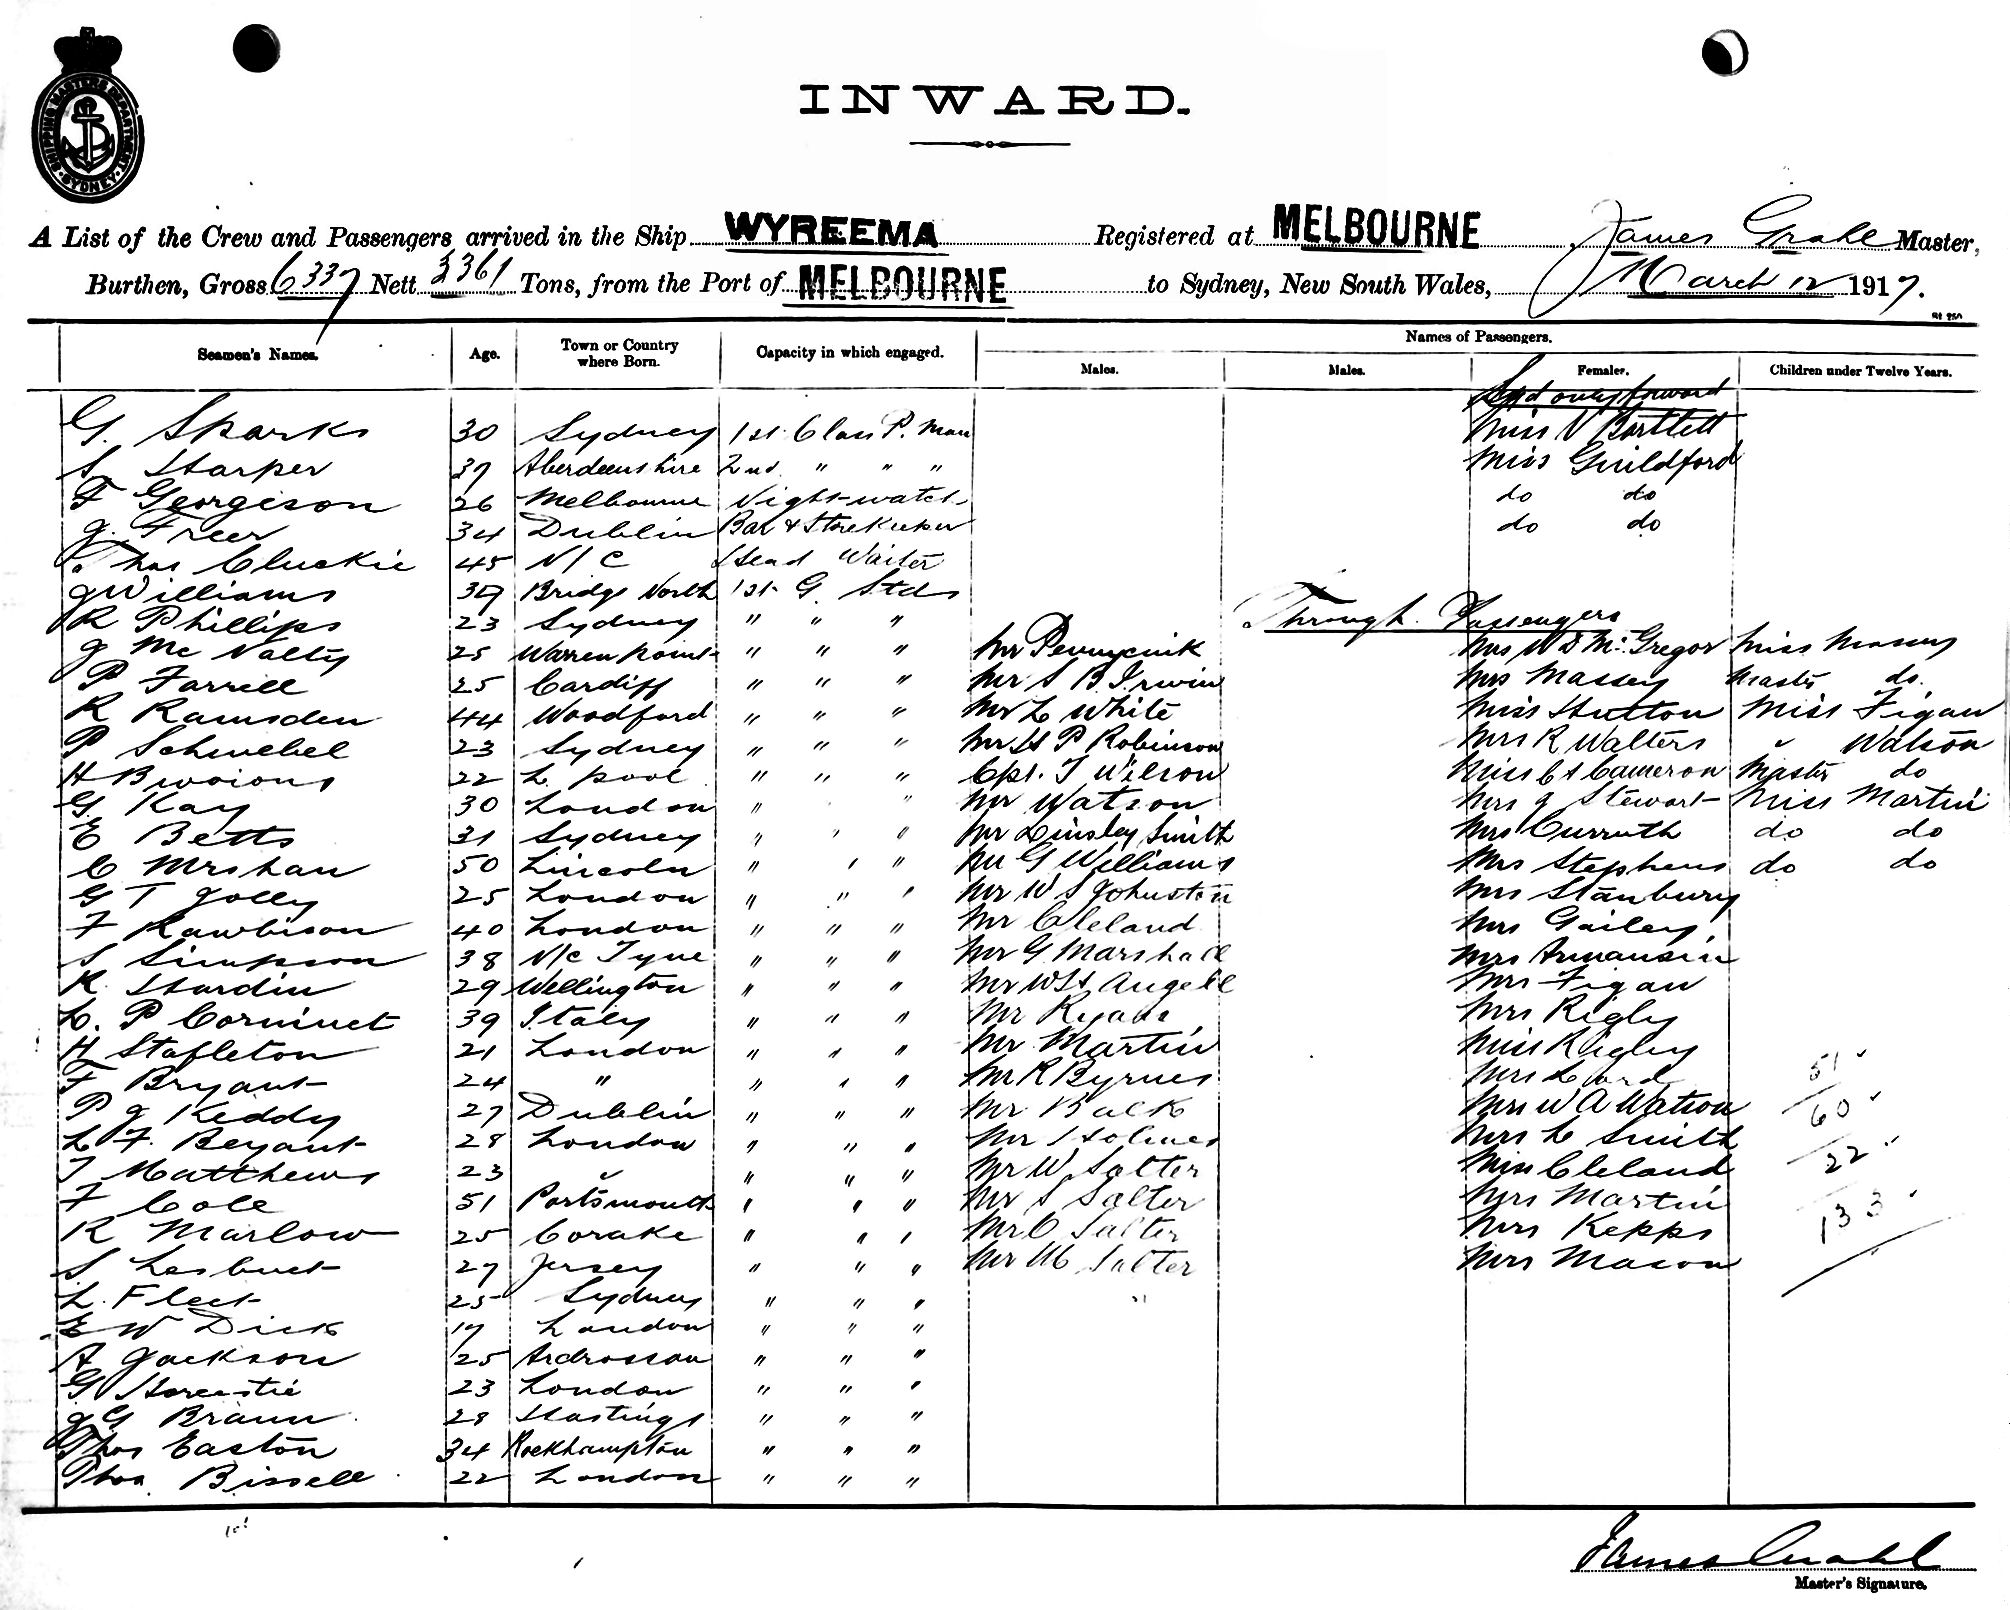 SHIPPING MASTERS DEPARTMENT SYDNEY
INWARD.
A List of the Crew and Passengers arrived in the Ship WYREEMA Registered at MELBOURNE James Master,
Burthen, Gross 6337 Nett 3361 Tons, from the Port of MELBOURNE to Sydney, New South Wales, March 12 1917.
Seamen's Names. Age. Town or Country where Born. Capacity in which engaged. Names of Passengers.
Males. Males. Females. Children under Twelve Years.
G. Sparks 30 Sydney 1st Class P. Man Miss V Bartlett
S Harper 37 Aberdeenshire 2nd " " " Miss Guildford
F Georgeson 26 Melbourne Night-watch do do
J. Freer 34 Dublin Bar & Storekeeper do do
Thos Cluckie 45 N/C Head Waiter
J Williams 39 Bridge North 1st G. Stds
R Phillips 23 Sydney " " " Through Passengers
J Mc Nalty 25 Warrenpoint " " " Mr Mrs W D McGregor Miss Massey
P Farrell 25 Cardiff " " " Mr S B Irwin Mrs Massey Master do.
R Ramsden 44 Woodford " " " Mr L White Miss Hutton Miss Figan
P Schwebel 23 Sydney " " " Mr H P Robinson Mrs R Walters " Watson
H 22 L. pool " " " Cpt. T Wilson Miss Cameron Master do
G. Kay 30 London " " Mr Watson Mrs J Stewart Miss Martin
E Betts 31 Sydney " " " Mr Linsley Smith Mrs Curruth do do
C Mrshan 50 Lincoln " " " Mr G Williams Mrs Stephens do do
G T Jolly 25 London " " " Mr W S Johnston Mrs Stanbury
F Rawlison 40 London " " " Mr Cleland Mrs Gailey
S Simpson 38 N/C Tyne " " " Mr G Marshall Mrs
R. Hardin 29 Wellington " " " Mr W H Angell Mrs Figan
L. P Corninet 39 Italy " " " Mr Mrs Rigby
H Stapleton 21 London " " " Mr Martin Miss Rigby
F Bryant 24 " " " " Mr R Byrnes Mrs 51
P J Keddy 27 Dublin " " " Mr Balk Mrs W A Watson 60
L F. Beyant 28 London " " " Mr Holmes Mrs L Smith
T Matthews 23 " " " " Mr W Salter Miss Cleland 22
F Cole 51 Portsmouth " " " Mr S Salter Mrs Martin
R Marlow 25 Corake " " " Mr C Salter Mrs Kepps 133
S 27 Jersey " " " Mr M Salter Mrs Macow
L. Fleet 25 Sydney " " "
E W Dick 17 London " " "
A Jackson 25 Ardrossan " " "
G 23 London " " "
J G Braun 28 Hastings " " "
Thos Easton 34 Rockhampton " " "
Thos. Bissell 22 London " " "
James
Master's Signature.